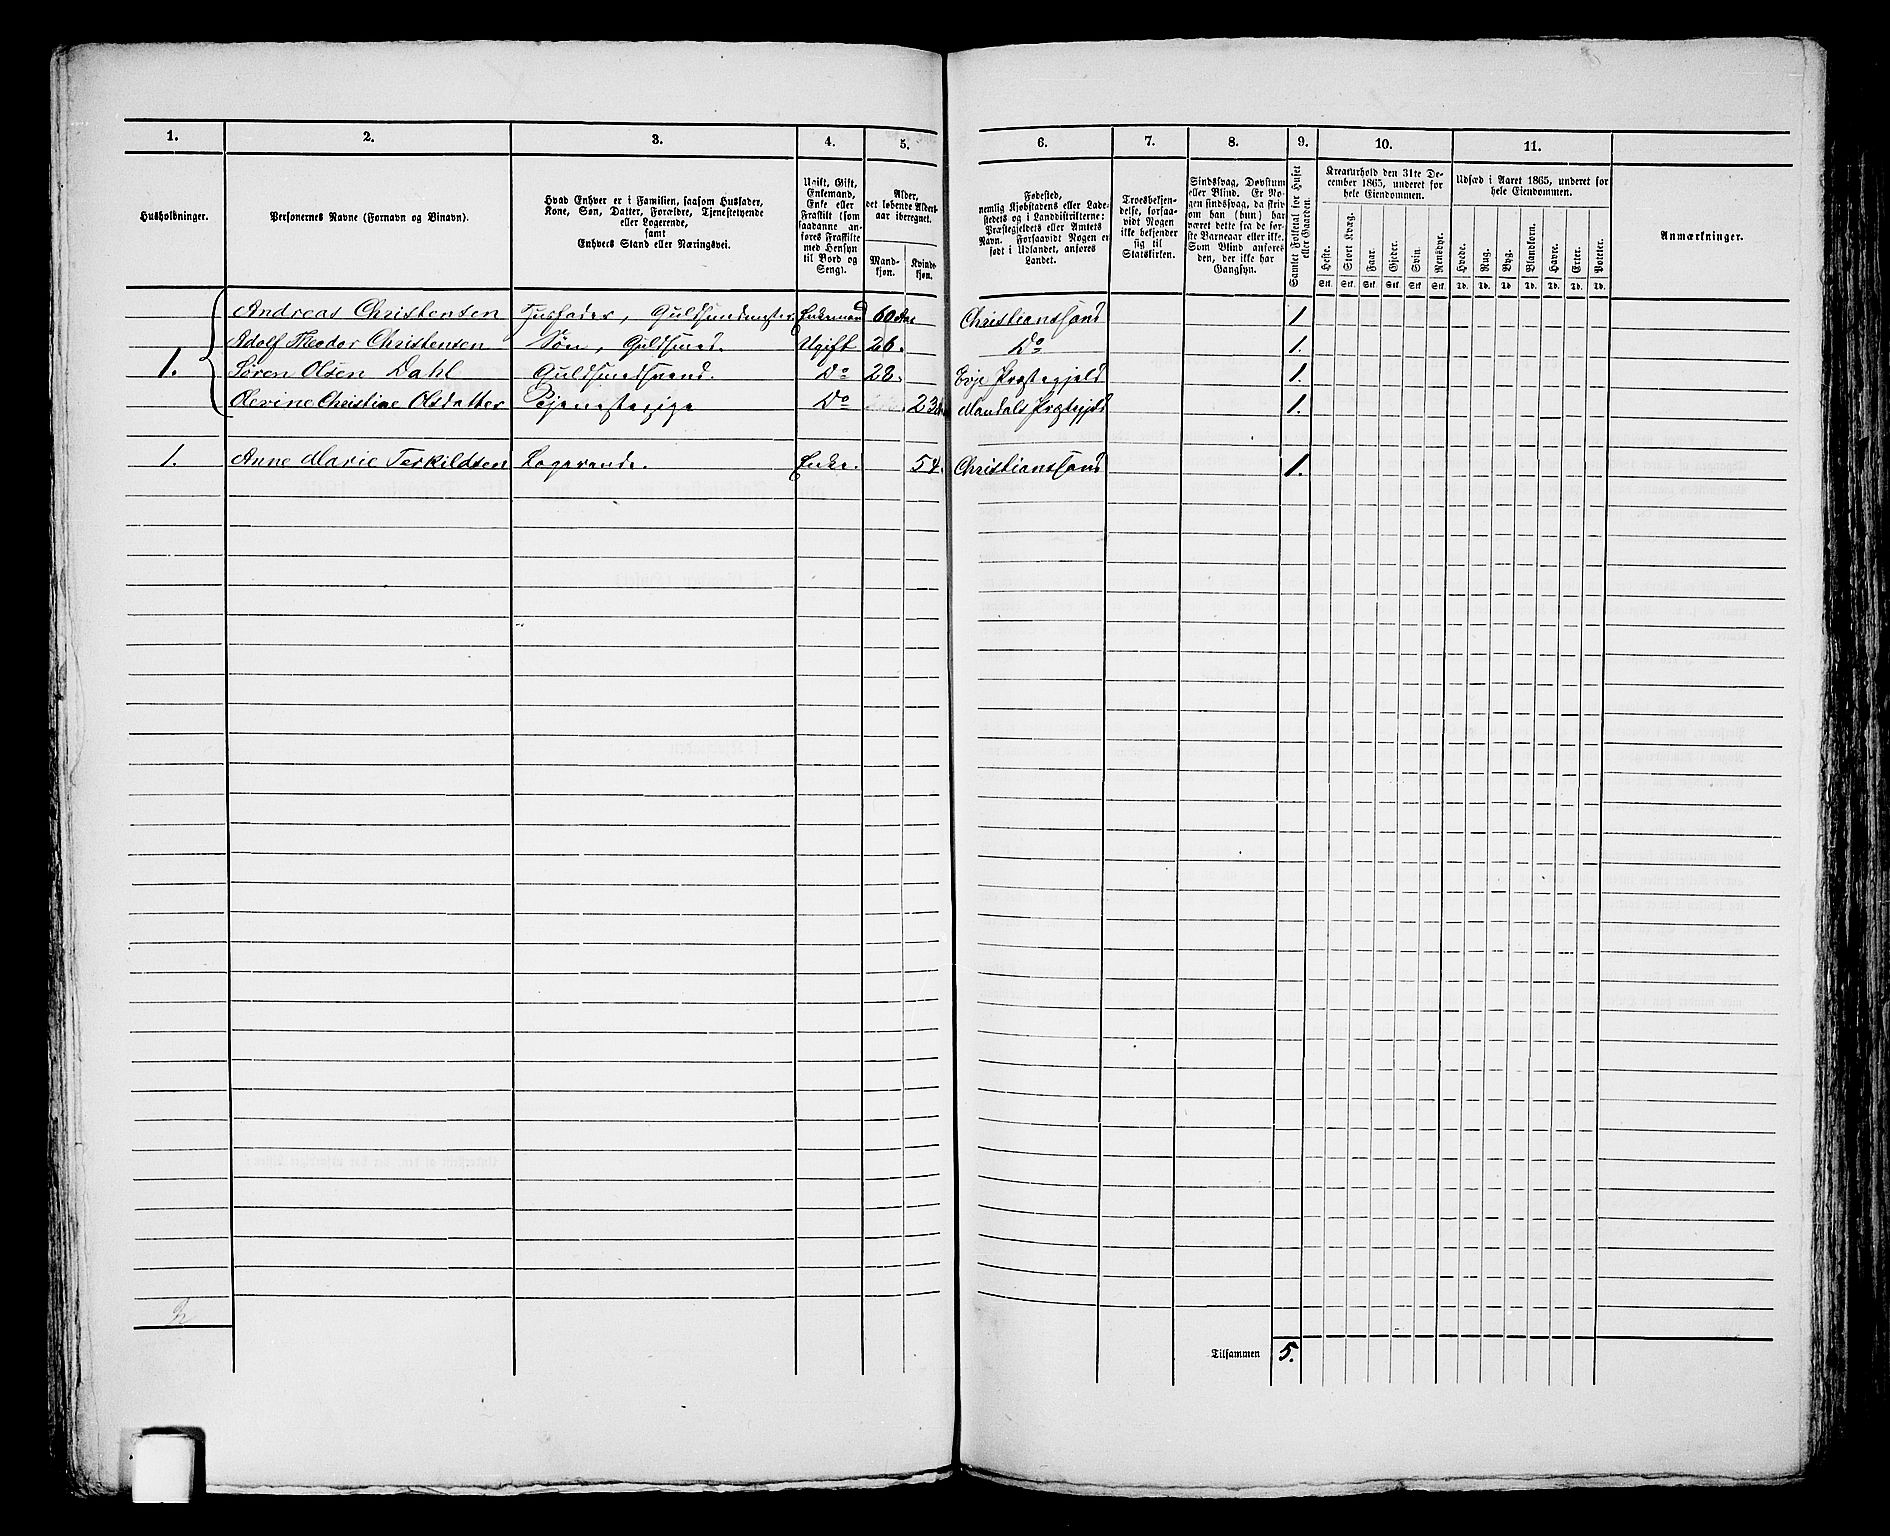 1. 2. 3. 4. 5. 6. 7. 8. 9. 10. 11.
Husholdninger.
Personernes Navne (Fornavn og Binavn).
Hvad Enhver er i Familien, saasom Husfader,
Kone, Søn, Datter, Forældre, Tjenestetyende
eller Logerende,
samt
Enhvers Stand eller Næringsvei.
Ugift, Gift,
Enkemand,
Enke eller
Fraskilt (som
saadanne an-
føres Fraskilte
med Hensyn
til Bord og
Seng).
Alder,
det løbende Alders-
aar iberegnet.
Mand-
kjøn.
Kvinde-
kjøn.
Fødested,
nemlig Kjøbstadens eller Lade-
stedets og i Landdistrikterne:
Præstegjeldets eller Amtets
Navn. Forsaavidt Nogen er
født i Udlandet, anføres
Landet.
Troesbekjen-
delse, forsaa-
vidt Nogen
ikke bekjender
sig til
Statskirken.
Sindssvag, Døvstum
eller Blind. Er No-
gen sindssvag, da skriv
om han (hun) har
været dette fra de før-
ste Barneaar eller ikke.
Som Blind anføres
den, der ikke har
Gangsyn.
Samlet Folketal for Huset
eller Gaarden.
Kreaturhold den 31te De-
cember 1865, underet for
hele Eiendommen.
Heste. Stort Kvæg. Faar. Gjeder. Svin. Rensdyr.
Stk. Stk. Stk. Stk. Stk. Stk.
Udsæd i Aaret 1865, underet for
hele Eiendommen.
Hvede. Rug. Byg. Blandkorn. Havre. Erter. Poteter.
Td. Td. Td. Td. Td. Td. Td.
Anmærkninger.
Andreas Christensen Husfader, Guldsmedmester Enkemand 60 Christianssand 1.
Adolf Theodor Christensen Søn, Guldsmed. Ugift 26. Do 1.
1. Søren Olsen Dahl Guldsmedsvend. Do 28. Evje Præstegjeld 1.
Christine Olsdatter Tjenestepige Do 23 Mandals Præstegjeld 1.
1. Anne Marie Terkildsen Logerende. Enke. 54. Christianssand 1.
2
Tilsammen 5.